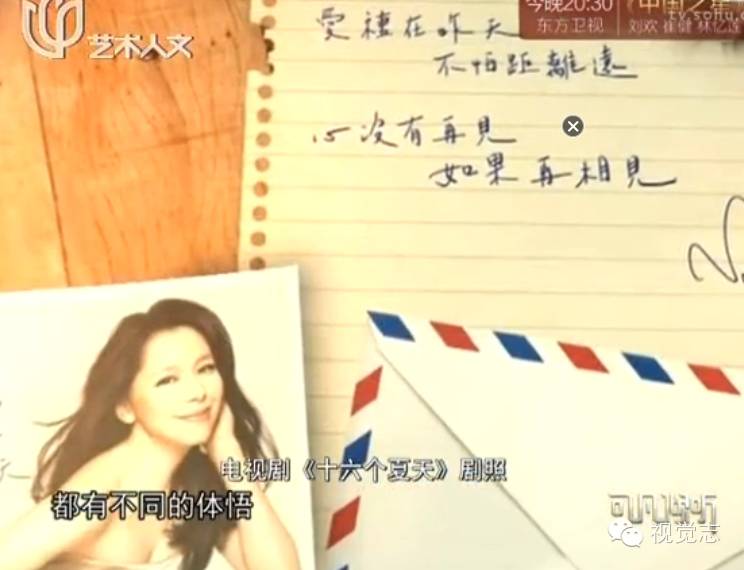 艺术人文
今晚20:30
《中国之星
tv.sohu.c
东方卫视
刘欢 崔健 林忆莲
愛 在昨天
不怕距離遠
心沒有再見
如果再相見
电视剧《十六个夏天》剧照
都有不同的体悟
可凡倾听
视觉志